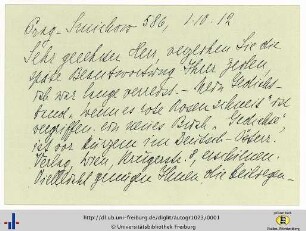 Prag-Smichow 586, 1.10.12
Sehr geehrter Herr, verzeihen Sie die
späte Beantwortung Ihrer Zeilen,
ich war lange verreist. – Mein Gedicht-
band, wenn es rote Rosen schneit" ist
vergriffen. Ein neues Buch „Gedichte",
ist vor kurzem im Deutsch-Österr.
Verlag, Wien, 8, erschienen.
Vielleicht genügen Ihnen die
http://dl.ub.uni-freiburg.de/diglit/autogr1023/0001
© Universitätsbibliothek Freiburg